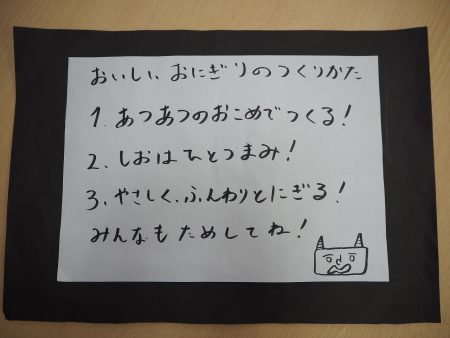 おいしい おにぎりのつくりかた
1. あつあつのおこめでつくる!
2. しおはひとつまみ!
3. やさしく、ふんわりとにぎる!
みんなもためしてね!